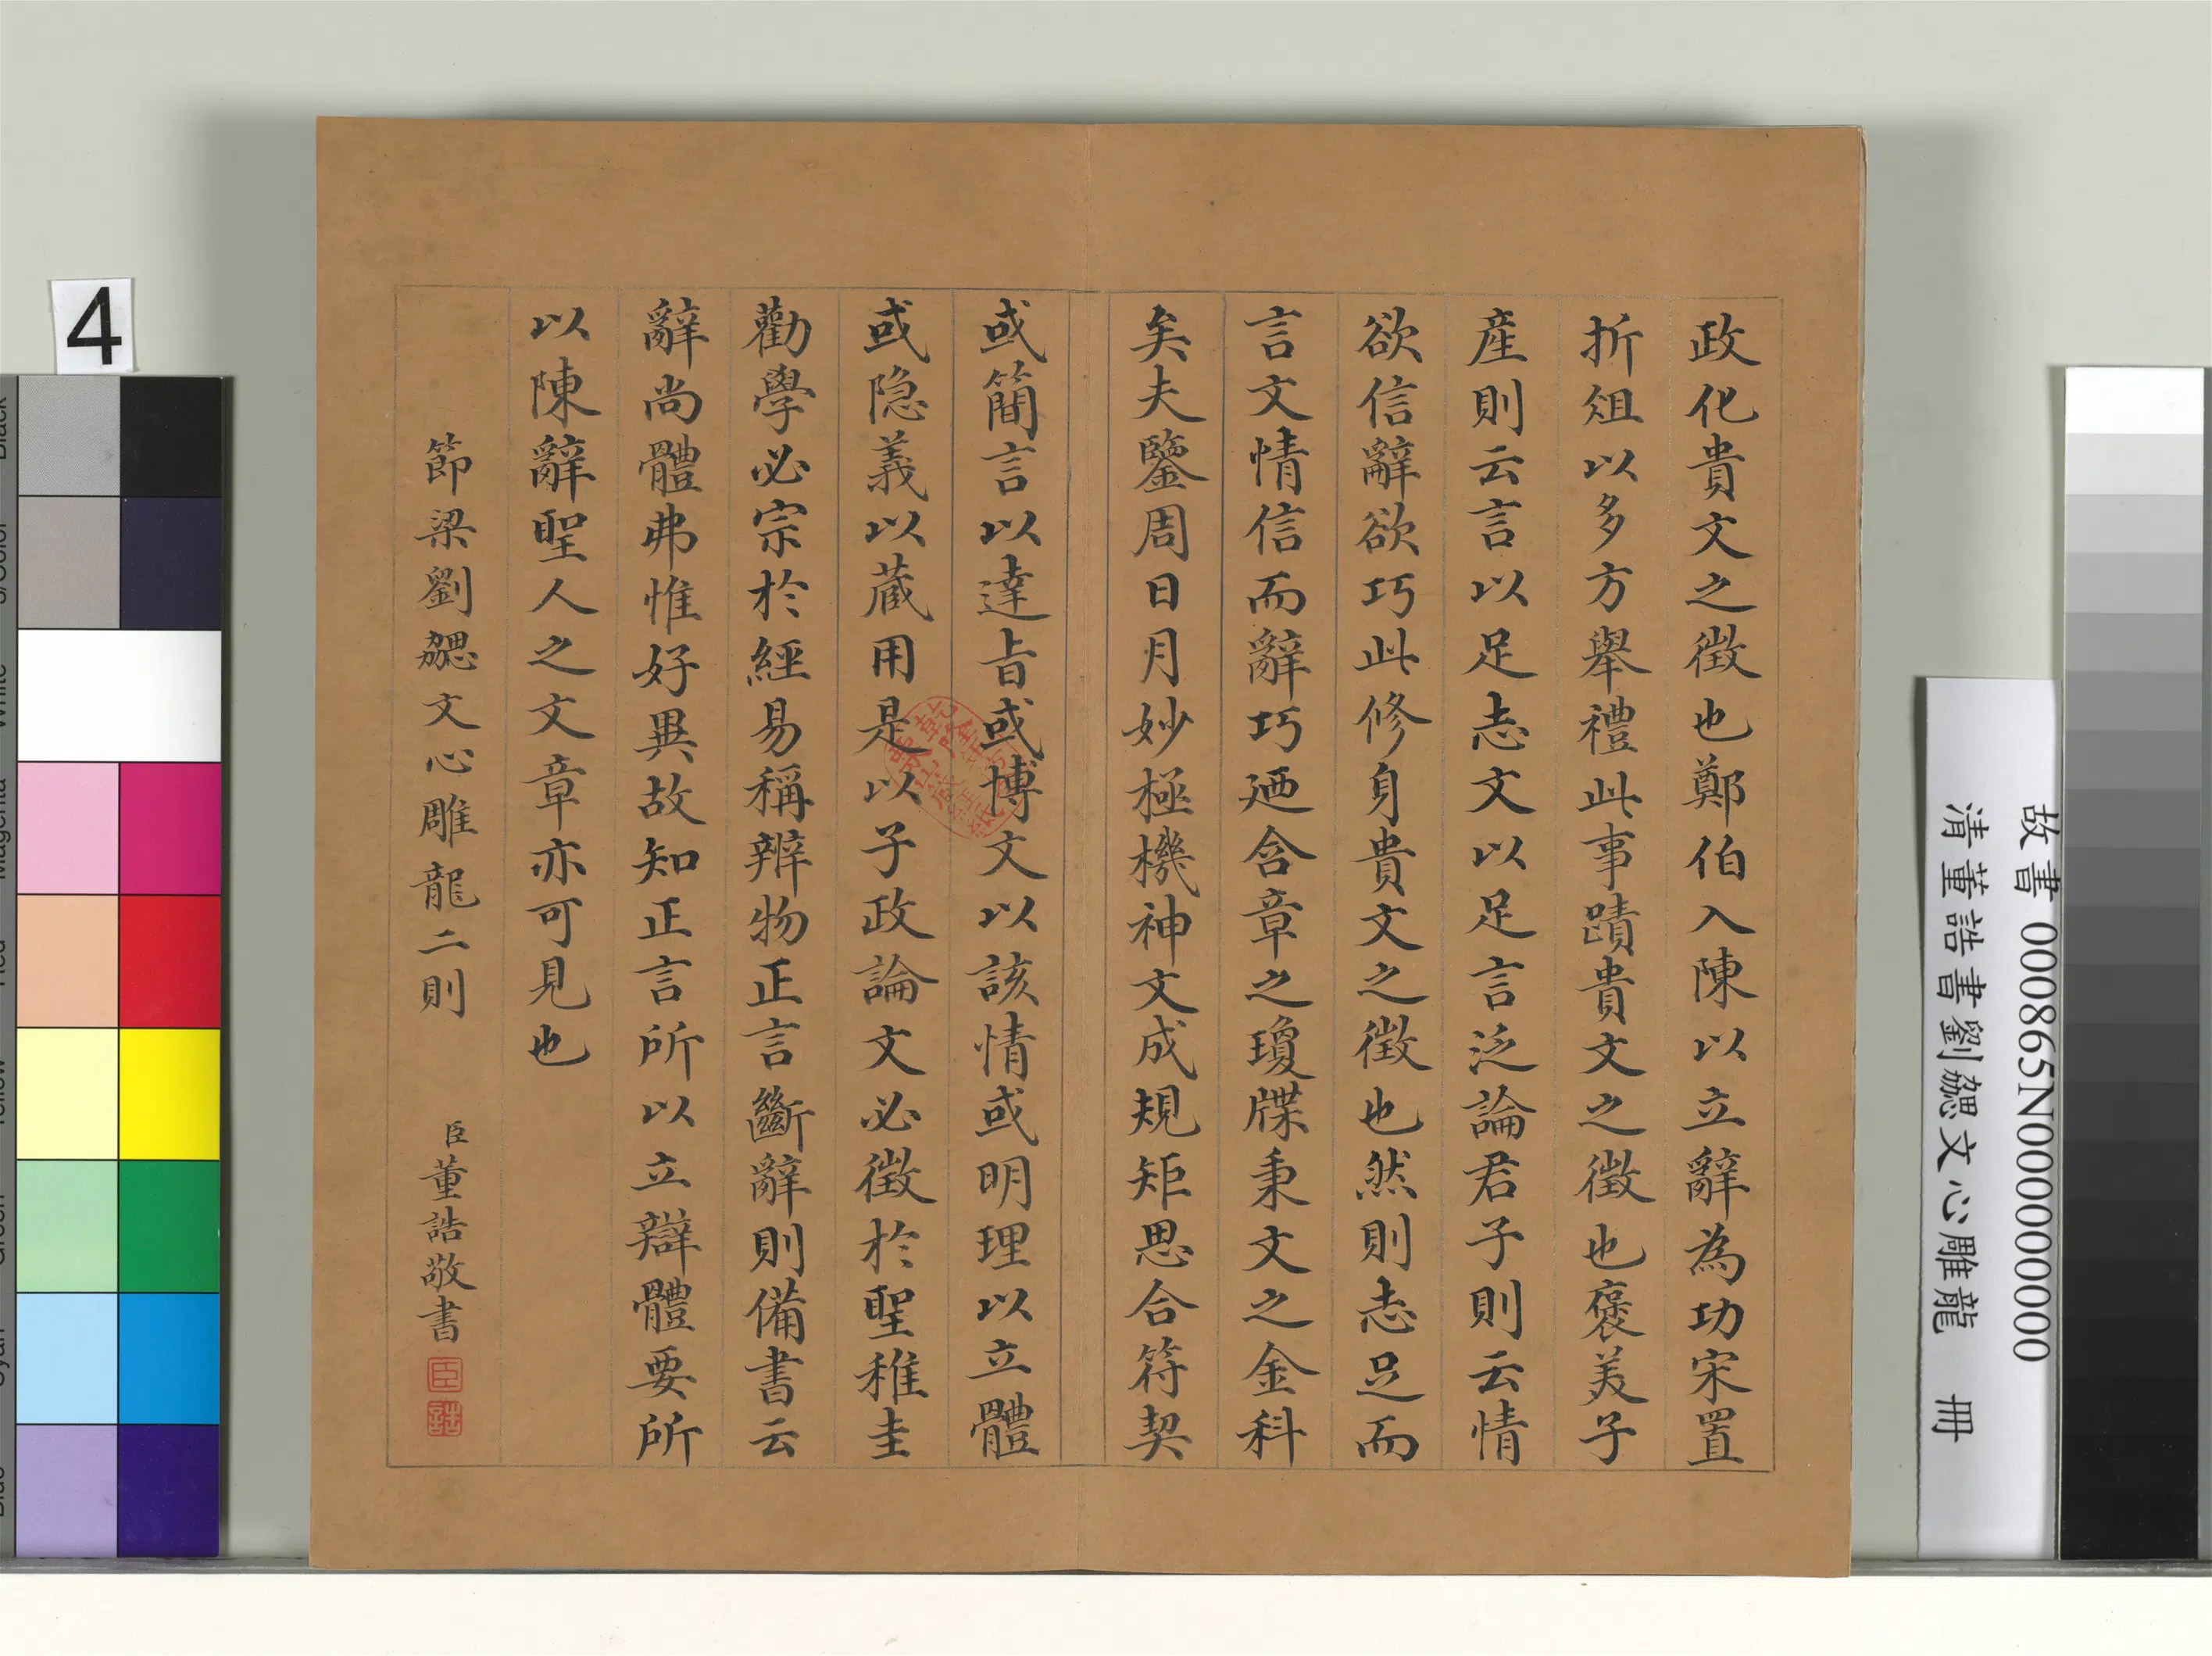 政化貴文之徵也鄭伯入陳以立辭為功宋置
折俎以多方舉禮此事蹟貴文之徵也褒美子
産則云言以足志文以足言泛論君子則云情
欲信辭欲巧此修身貴文之徵也然則志足而
言文情信而辭巧廼含章之瓊牒秉文之金科
矣夫鑒周日月妙極機神文成規矩思合符契
或簡言以達旨或博文以該情或明理以立體
或隐義以蔵用是以子政論文必徵於聖稚圭
勸學必宗於經易稱辨物正言斷辭則備書云
辭尚體弗惟好異故知正言所以立辯體要所
以陳辭聖人之文章亦可見也
節梁劉勰文心雕龍二則 臣董誥敬書
臣
誥
4
故書 000865N000000000
清董誥書劉勰文心雕龍 冊